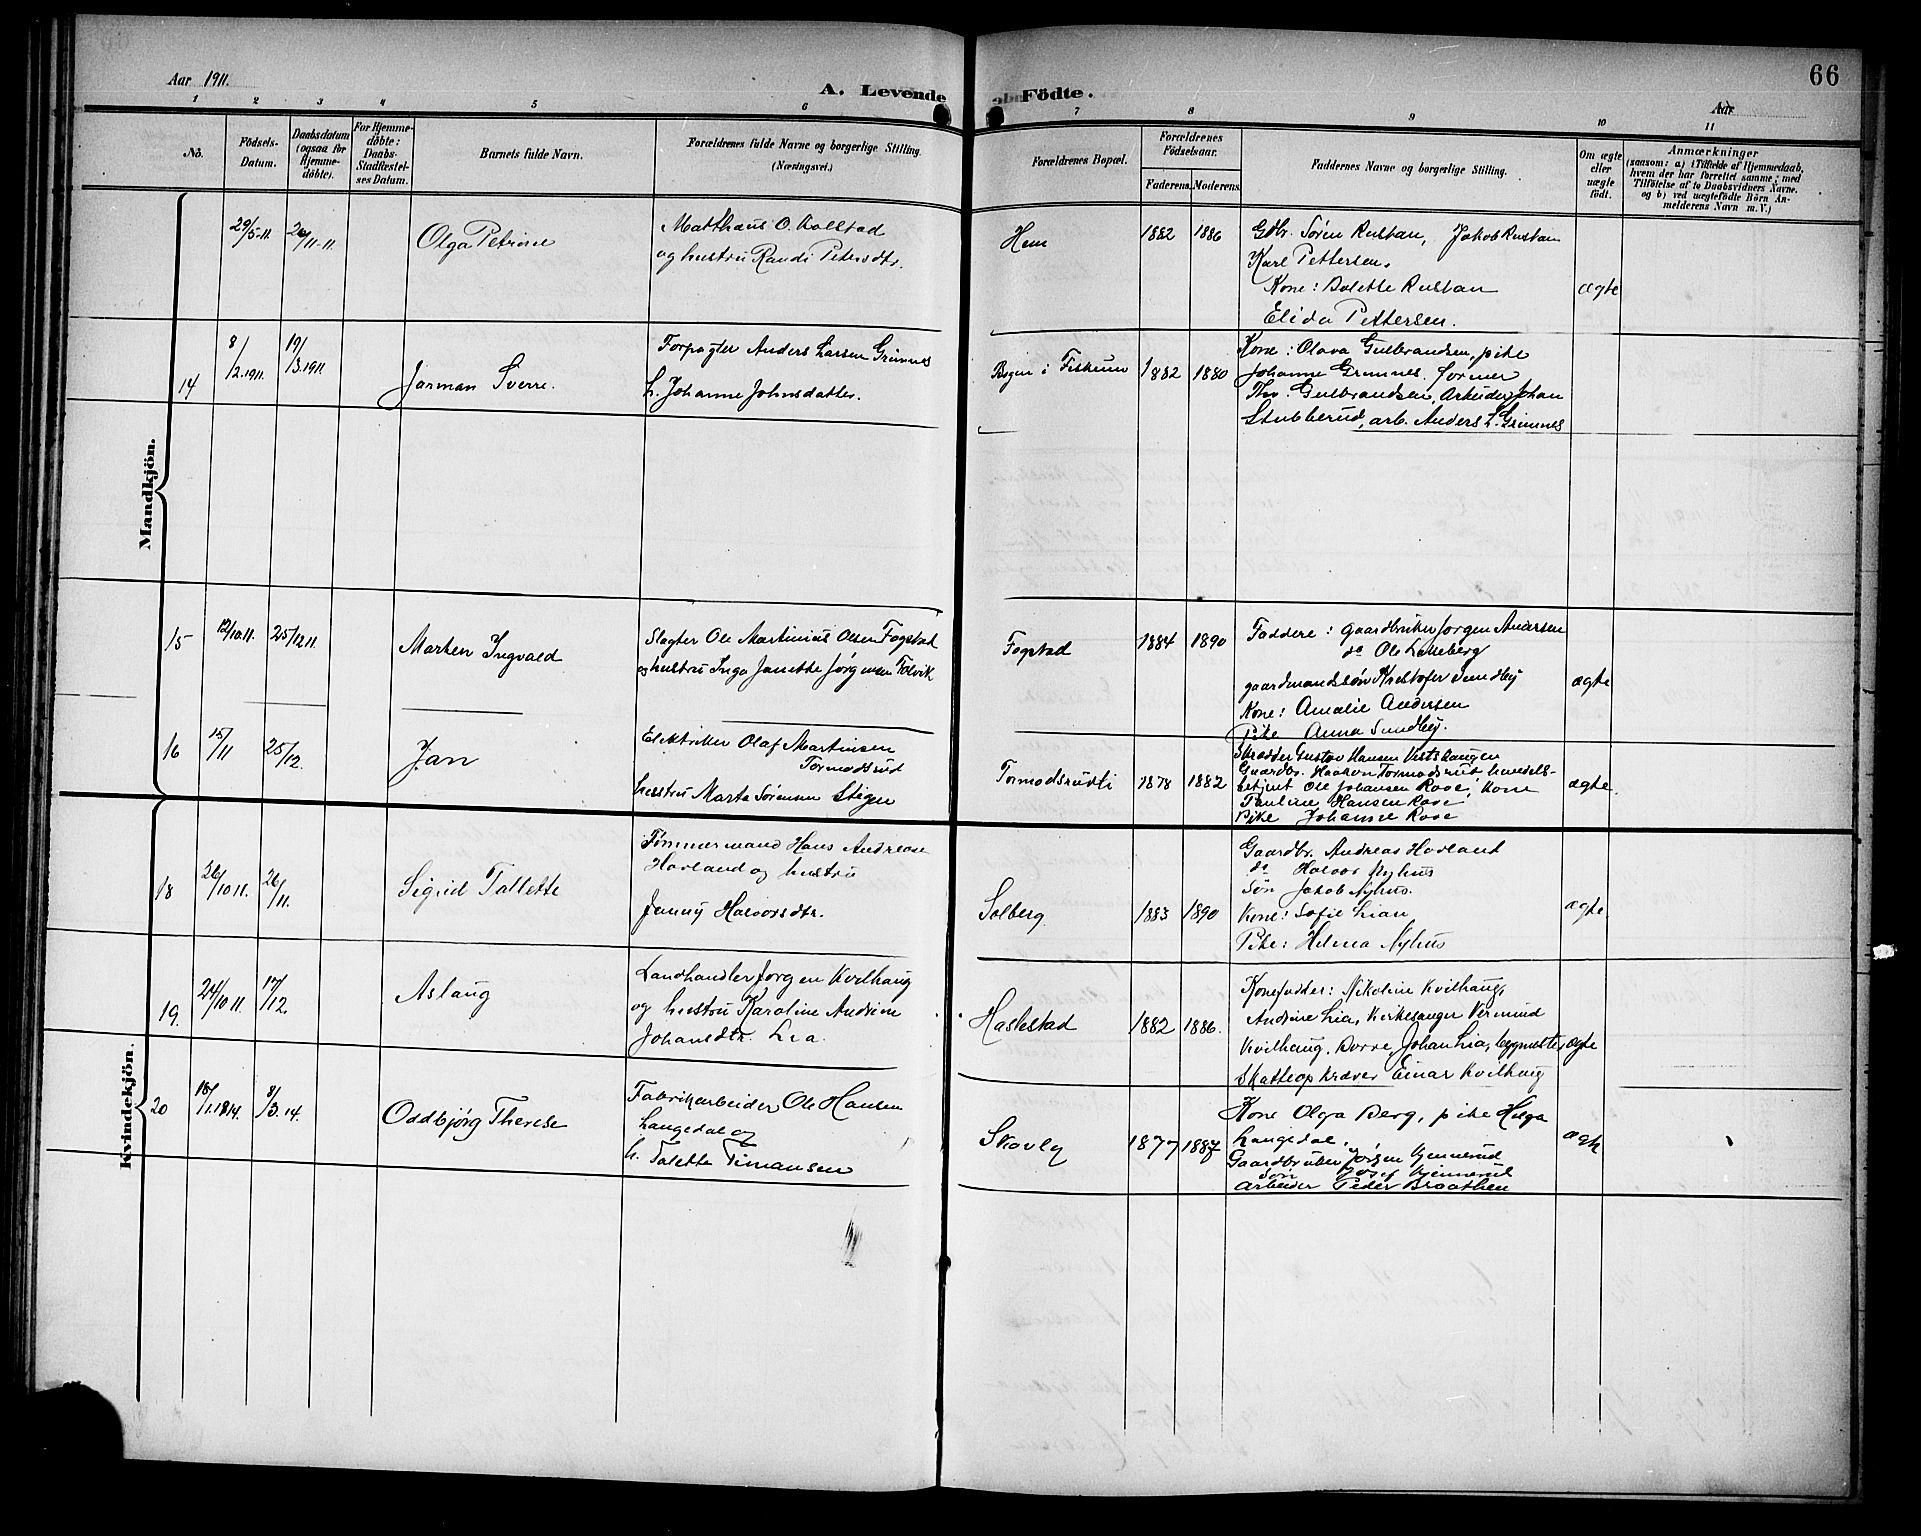 66
Aar 1911.
A. Levende Födte.
Aar
1 2 3 4 5 6 7 8 9 10 11
No.
Födsels-
Datum.
Daabsdatum
(ogsaa for
Hjemme-
döbte).
For Hjemme-
döbte:
Daabs-
Stadfæstel-
ses Datum.
Barnets fulde Navn.
Forældrenes fulde Navne og borgerlige Stilling.
(Næringsvei.)
Forældrenes Bopæl.
Forældrenes
Födselsaar.
Faderens. Moderens.
Faddernes Navne og borgerlige Stilling.
Om ægte
eller
uægte
født.
Anmærkninger
(saasom: a) i Tilfælde af Hjemmedaab,
hvem der har forrettet samme; med
Tilföielse af to Daabsvidners Navne.
og b) ved uægtefödte Börn An-
melderens Navn m. V.)
Mandkjön.
29/5-11. 26/11-11.
Olga Petrine
Matthæus O. Kolstad
og hustru Randi Petersdtr.
Hem 1882 1886
Gbr. Søren Rustan, Jakob Rustan
Karl Pettersen.
Kone: Bolette Rustan
Elida Pettersen.
ægte
14 8/2.1911. 19/3.1911
Jarman Sverre.
Forpagter Anders Larsen Grimnes
h. Johanne Johnsdatter.
Bogen i Fiskum 1882 1880
Kone: Olava Gulbrandsen, pike
Johanne Grimnes. former
Thv. Gulbrandsen, Arbeider Johan
Stubberud, arb. Anders L. Grimnes
15 12/10.11. 25/12 11
Marten Ingvald
Slagter Ole Martinius Olsen Fogstad
og hustru Inga Janette Jørgensen Tolvik
Fogstad 1884 1890
Faddere: Gaardbruker Jørgen Andersen
do Ole Lakseberg
gaardmandssøn Kristofer Sundby
Kone: Amalie Andersen
Pike Anna Sundby.
ægte
16 15/11 25/12.
Jan
Elektriker Olaf Martinsen
Tormodsrud
hustru Marta Sørensen Stigen
Tormodsrudli 1878 1882
Skrædder Gustav Hansen Vestshaugen
Gaardbr. Haakon Tormodsrud, handels-
betjent Ole Johansen Rove, Kone
Pauline Hansen Rove
Pike Johanne Rove
ægte.
Kvindekjön.
18 26/10 11. 26/11.
Sigrid Tallette
Tømmermand Hans Andreas
Havland og hustru
Jenny Halvorsdtr.
Solberg 1883 1890
Gaardbr. Andreas Horland
do Halvor Nyhus
Søn Jakob Nyhus.
Kone: Sofie Lian
Pike: Helma Nyhus
ægte
19. 24/10 11. 17/12.
Aslaug
Landhandler Jørgen Kvilhaug
og hustru Karoline Andrine
Johansdtr. Lia.
Haslestad 1882 1886.
Konefadder: Nikoline Kvilhaug,
Andrine Lia, Kirkesanger Vermund
Kvilhaug, Borre, Johan Lia, bygmester,
Skatteopkræver Einar Kvilhaug
ægte
20 18/1.1914. 8/3.14.
Oddbjørg Therese
Fabrikarbeider Ole Hansen
Langedal og
h. Talette Timansen
Skovly 1877 1887
Kone Olga Berg, pike Helga
Langedal.
Gaardbruker Jørgen Hjennerud
Søn Josef Hjennerud
Arbeider Peder Braathen
ægte